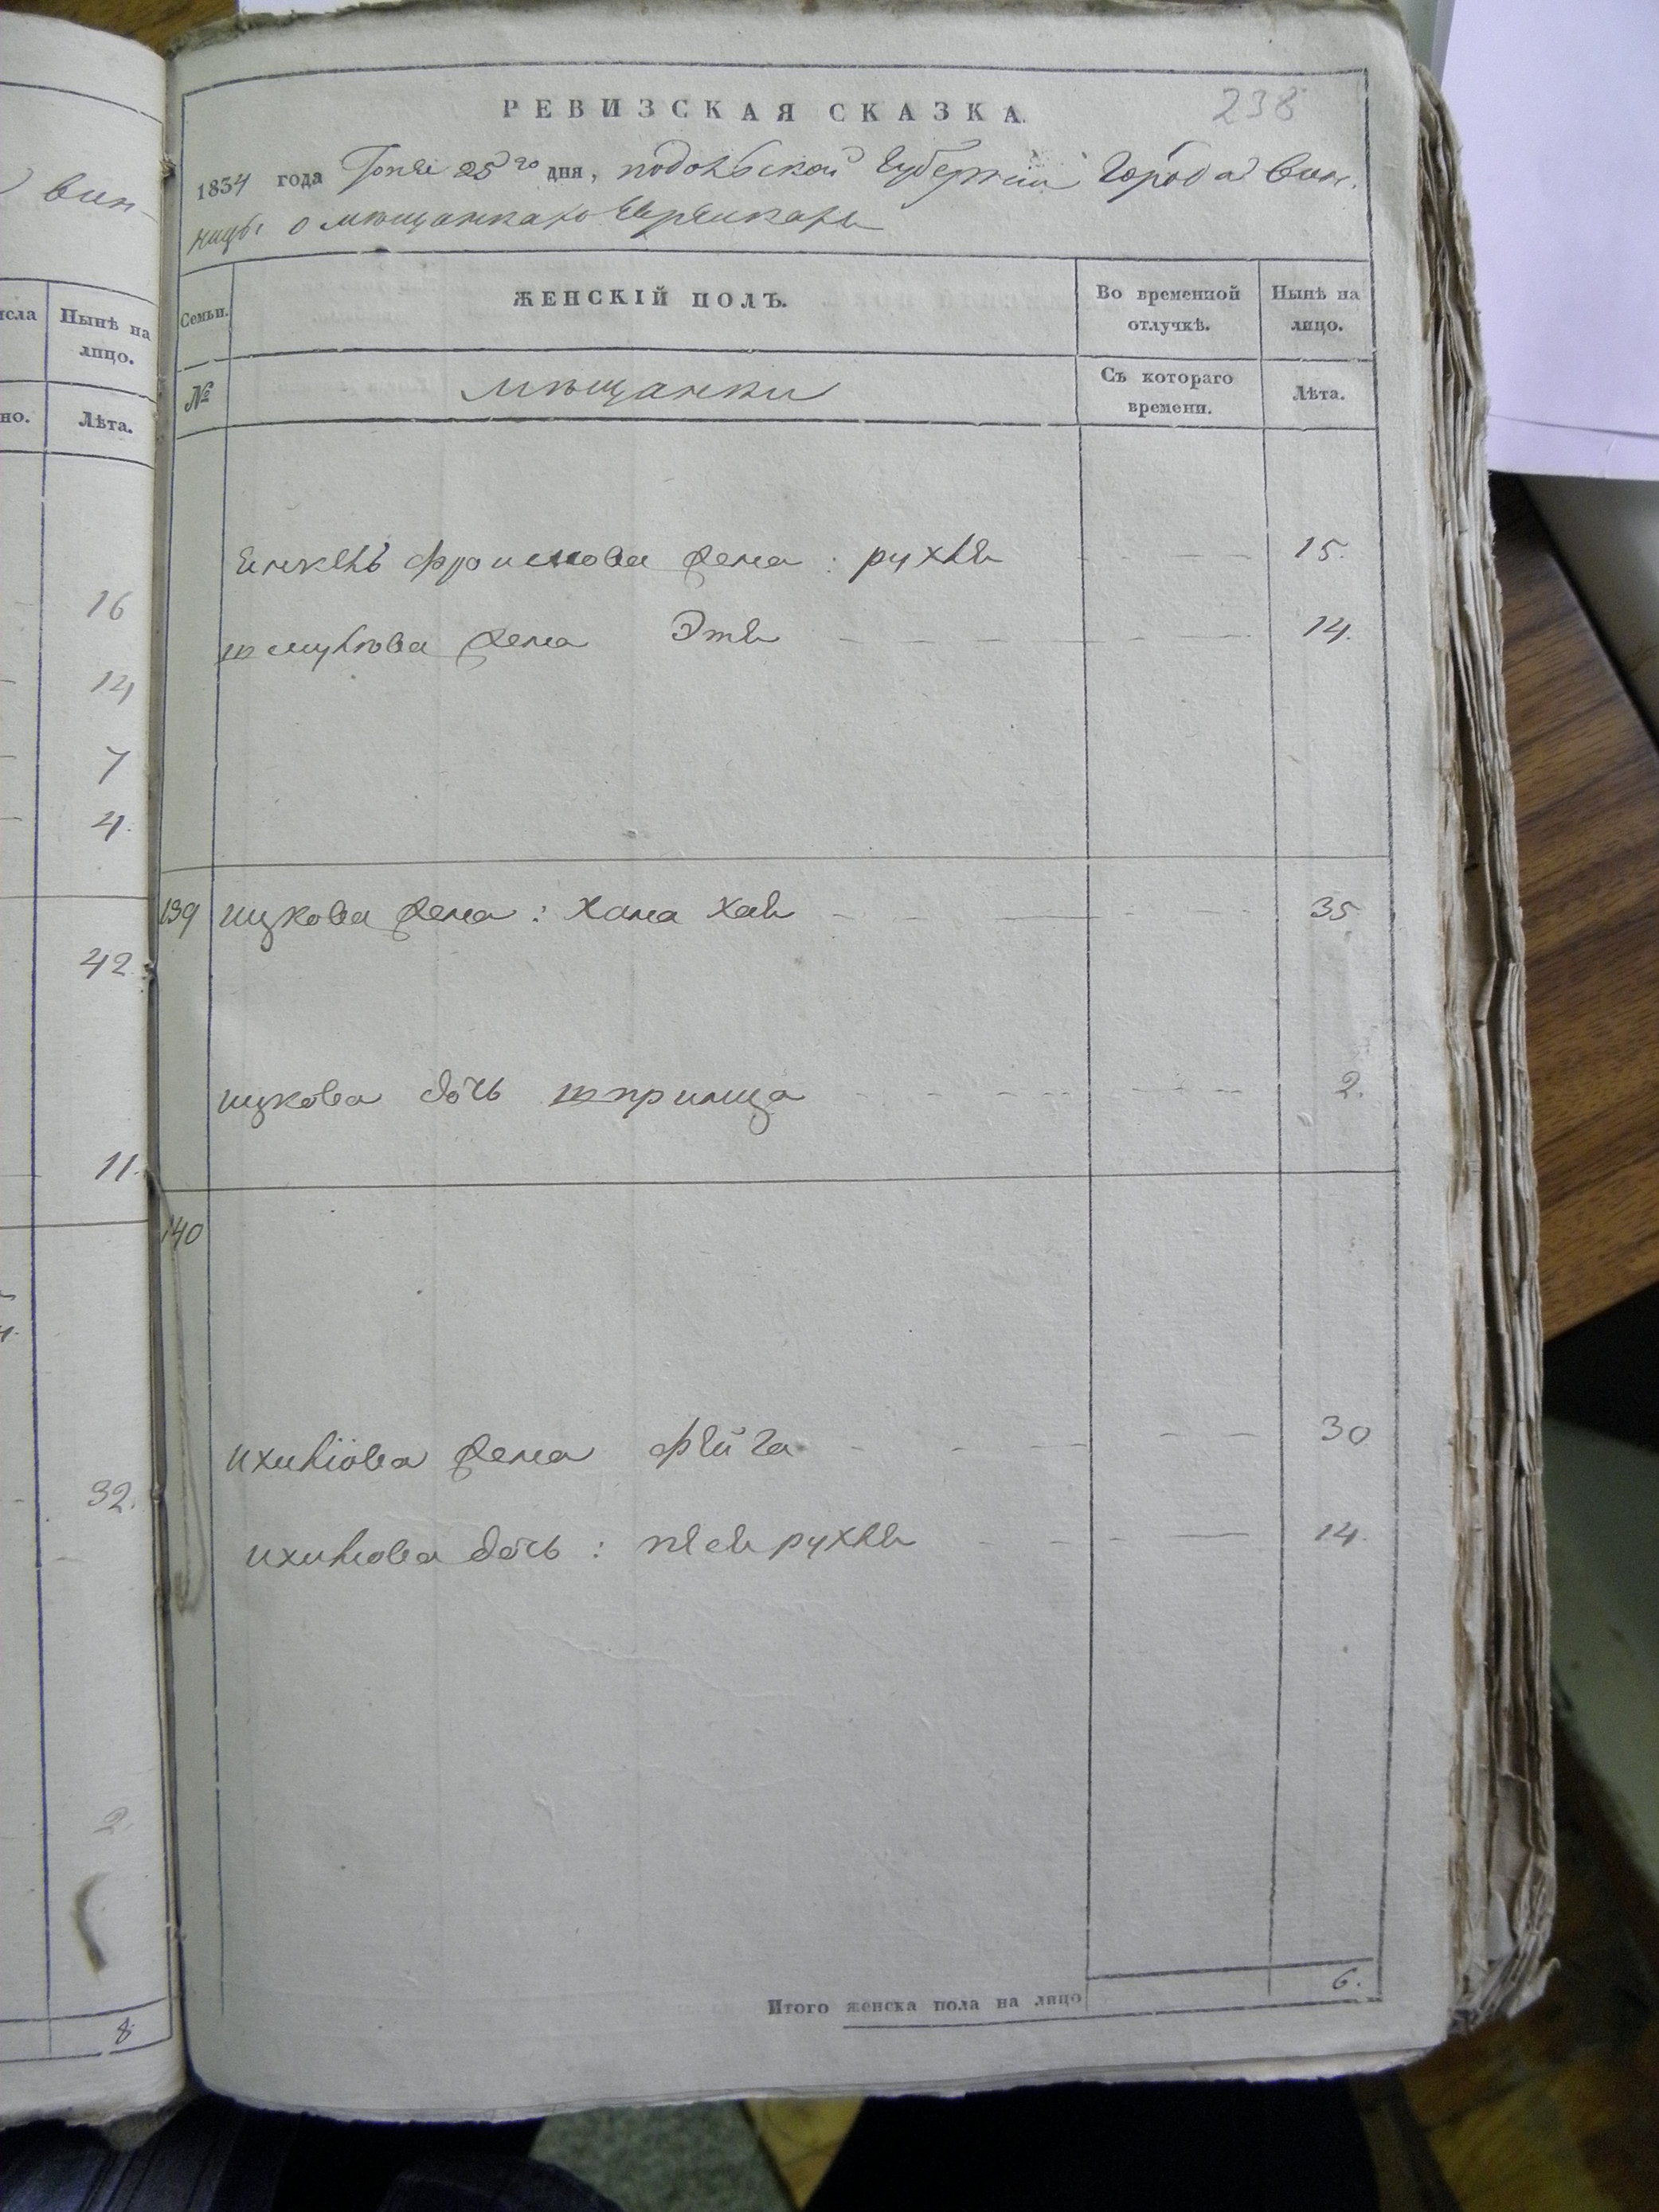 вин-
исла
Нынѣ на
лицо.
но.
Лѣта.
16
14
7
4.
42.
11.
32.
2.
8
238
РЕВИЗСКАЯ СКАЗКА
1834 года Іюня 25го дня, подольской Губерніи Города Вин-
ницы о мѣщанкахъ Еврейкахъ
Семьи.
ЖЕНСКІЙ ПОЛЪ.
Во временной
отлучкѣ.
Нынѣ на
лицо.
№
мѣщанки
Съ котораго
времени.
Лѣта.
фроимова жена : рухля 15.
шмулюва жена Этя 14.
139 ицкова жена : Хана Хая 35
ицкова дочь шпринца 2.
140
ихилюва жена фейга 30
ихилюва дочь : песя рухля 14.
Итого женска пола на лицо 6.